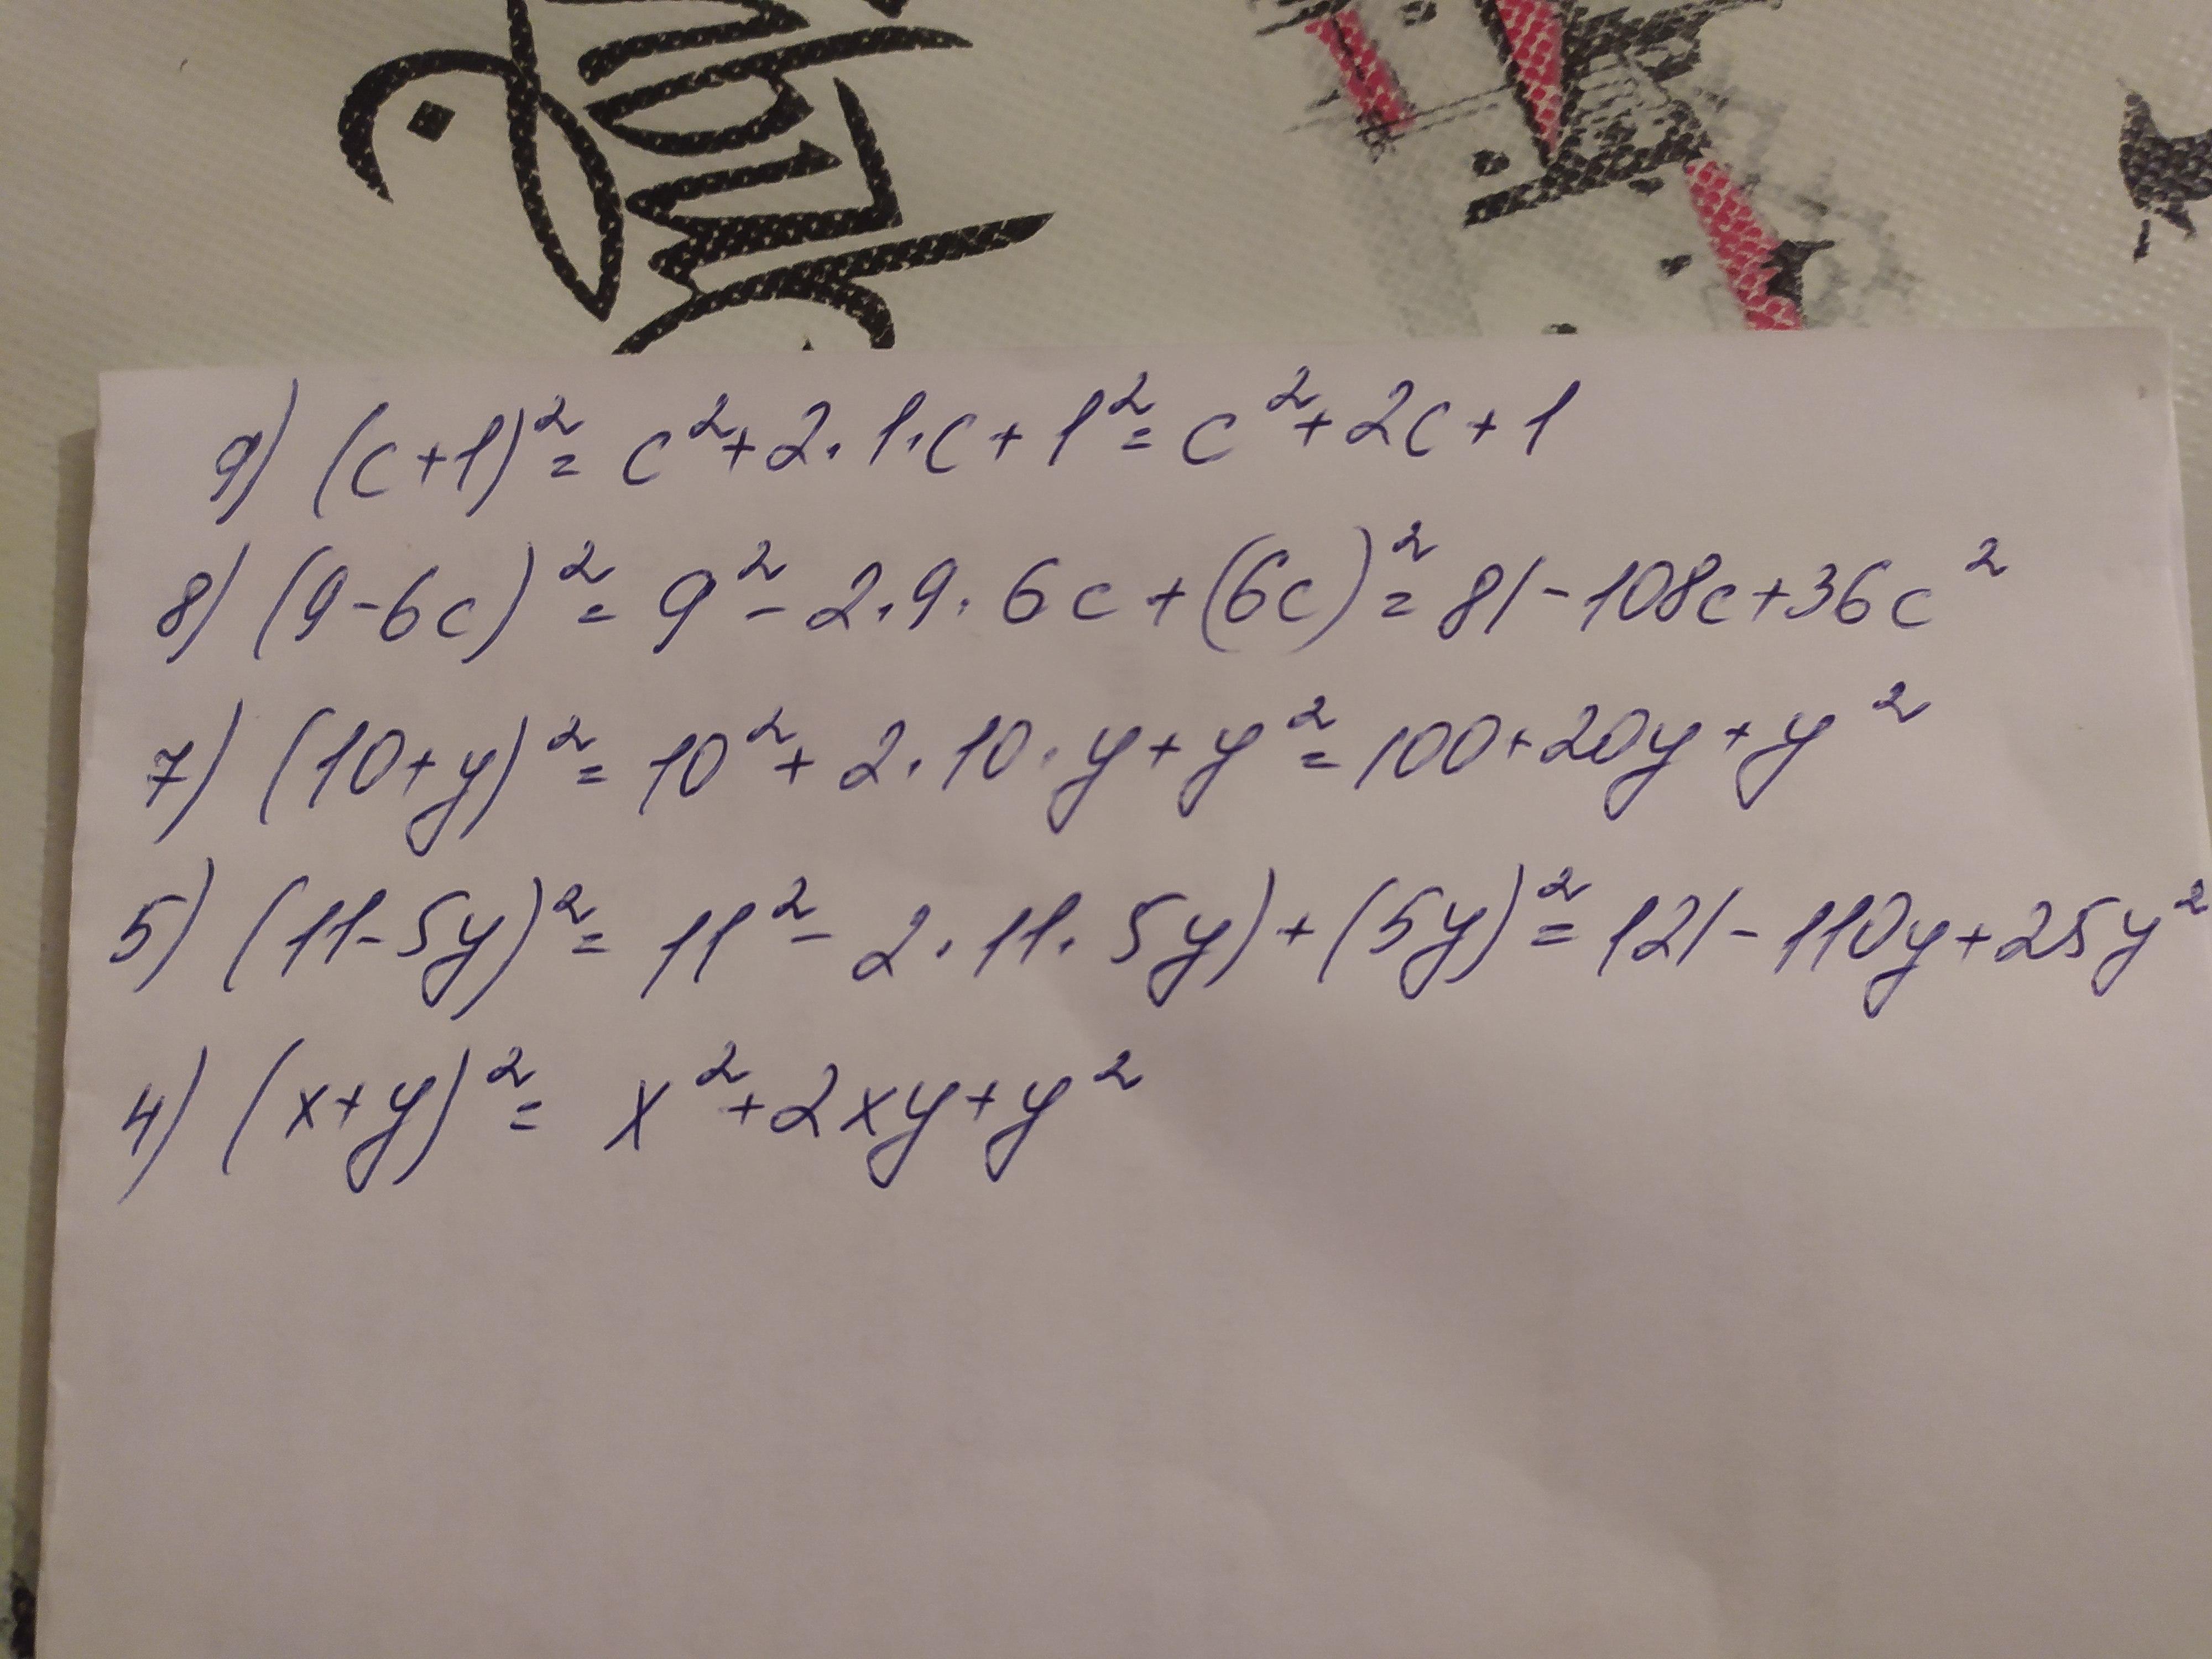 9) (c+1)²= c²+2·1·c+1²= c²+2c+1
8) (9-6c)²= 9²-2·9·6c+(6c)²=81-108c+36c²
7) (10+y)²=10²+2·10·y+y²=100+20y+y²
5) (11-5y)²= 11²-2·11·5y)+(5y)²=121-110y+25y²
4) (x+y)²= x²+2xy+y²